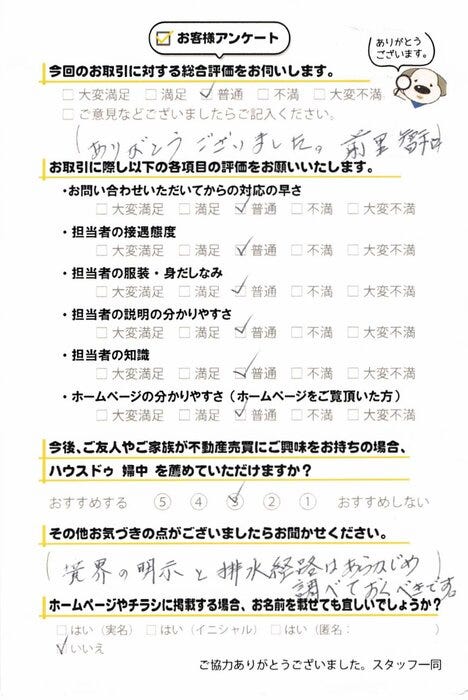 お客様アンケート
ありがとう
ございます。
今回のお取引に対する総合評価をお伺いします。
□大変満足 □満足 ☑普通 □不満 □大変不満
□ご意見などございましたらご記入ください。
(ありがとうございました。
お取引に際し以下の各項目の評価をお願いいたします。
・お問い合わせいただいてからの対応の早さ
□大変満足 □満足 ☑普通 □不満 □大変不満
・担当者の接遇態度
□大変満足 □満足 ☑普通 □不満 □大変不満
・担当者の服装・身だしなみ
□大変満足 □満足 ☑普通 □不満 □大変不満
・担当者の説明の分かりやすさ
□大変満足 □満足 ☑普通 □不満 □大変不満
・担当者の知識
□大変満足 □満足 ☑普通 □不満 □大変不満
・ホームページの分かりやすさ(ホームページをご覧頂いた方)
□大変満足 □満足 ☑普通 □不満 □大変不満
今後、ご友人やご家族が不動産売買にご興味をお持ちの場合、
ハウスドゥ 婦中 を薦めていただけますか?
おすすめする ⑤ ④ ③ ② ① おすすめしない
その他お気づきの点がございましたらお聞かせください。
(境界の明示と排水経路はあらかじめ
調べておくべきです。
ホームページやチラシに掲載する場合、お名前を載せても宜しいでしょうか?
□はい(実名) □はい(イニシャル) □はい(匿名: )
☑いいえ
ご協力ありがとうございました。スタッフ一同